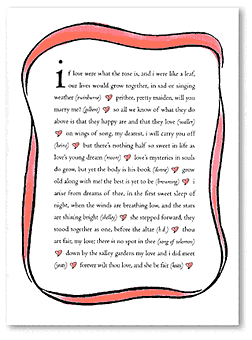 if love were what the rose is, and i were like a leaf,
our lives would grow together, in sad or singing
weather (swinburne) prithee, pretty maiden, will you
marry me? (gilbert) so all we know of what they do
above is that they happy are and that they love (waller)
on wings of song, my dearest, i will carry you off
(heine) but there's nothing half so sweet in life as
love's young dream (moore) love's mysteries in souls
do grow, but yet the body is his book (donne) grow
old along with me! the best is yet to be (browning) i
arise from dreams of thee, in the first sweet sleep of
night, when the winds are breathing low, and the stars
are shining bright (shelley) she stepped forward, they
stood together as one, before the altar (h.d.) thou
art fair, my love; there is no spot in thee (song of solomon)
down by the salley gardens my love and i did meet
(yeats) forever wilt thou love, and she be fair (keats)